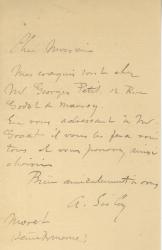 Cher Monsieur
Mes croquis sont chez
Mr Georges Petit 12 Rue
Godot de Mauroy.
En vous adressant à Mr
il vous les fera voir
tous et vous pourrez ainsi
choisir
Bien amicalement à vous
A. Sisley
Moret